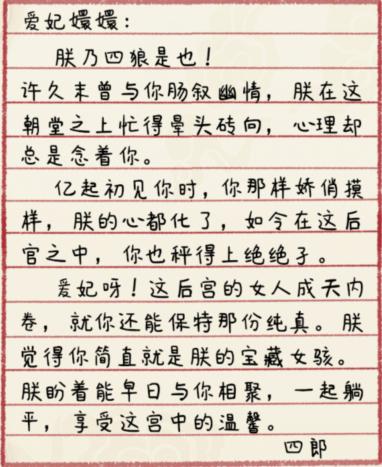 爱妃嬛嬛：
朕乃四狼是也！
许久未曾与你肠叙幽情，朕在这
朝堂之上忙得晕头砖向，心理却
总是念着你。
亿起初见你时，你那样娇俏摸
样，朕的心都化了，如令在这后
官之中，你也秤得上绝绝子。
爱妃呀！这后宫的女人成天内
卷，就你还能保特那份纯真。朕
觉得你简直就是朕的宝藏女骇。
朕盼着能早日与你相聚，一起躺
平，享受这宫中的温馨。
四郎